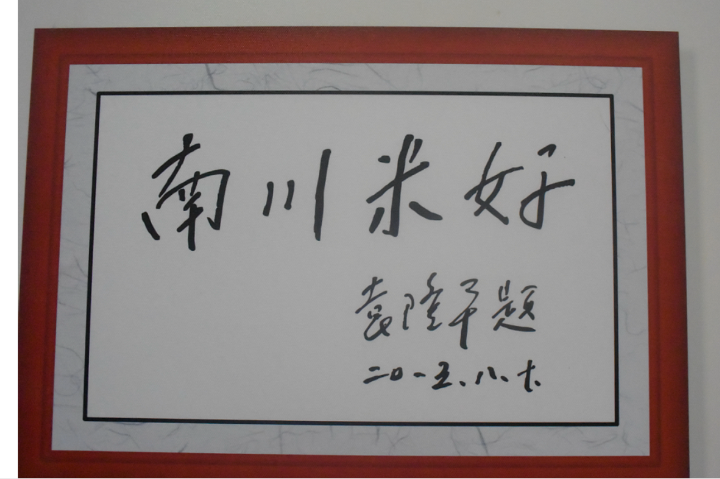 南川米好
袁隆平题
二〇一五.八.十.